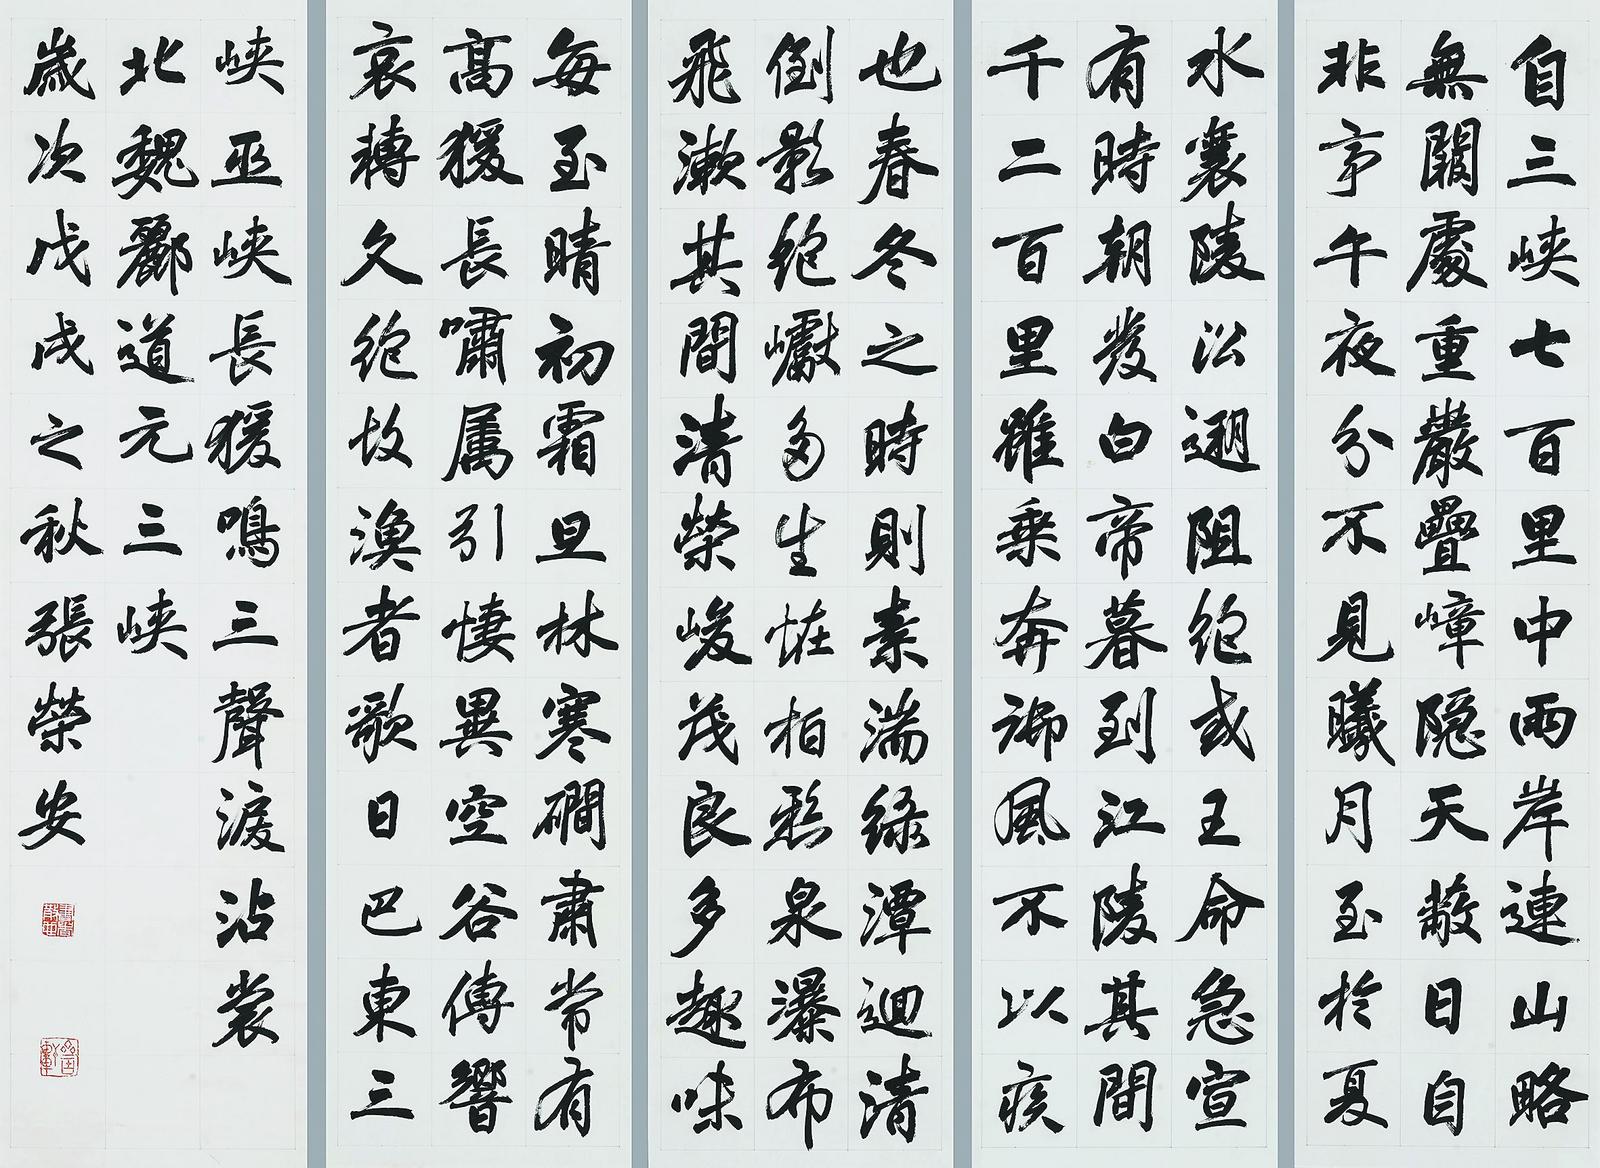 自三峽七百里中兩岸連山略
無闕處重巖疊嶂隱天蔽日自
非亭午夜分不見曦月至於夏
水襄陵沿溯阻絕或王命急宣
有時朝發白帝暮到江陵其間
千二百里雖乘奔御風不以疾
也春冬之時則素湍綠潭迴清
倒影絕巘多生怪柏懸泉瀑布
飛漱其間清榮峻茂良多趣味
每至晴初霜旦林寒磵肅常有
高猨長嘯屬引悽異空谷傳響
哀轉久絕故漁者歌曰巴東三
峽巫峽長猨鳴三聲淚沾裳
北魏酈道元三峽
歲次戊戌之秋張榮安